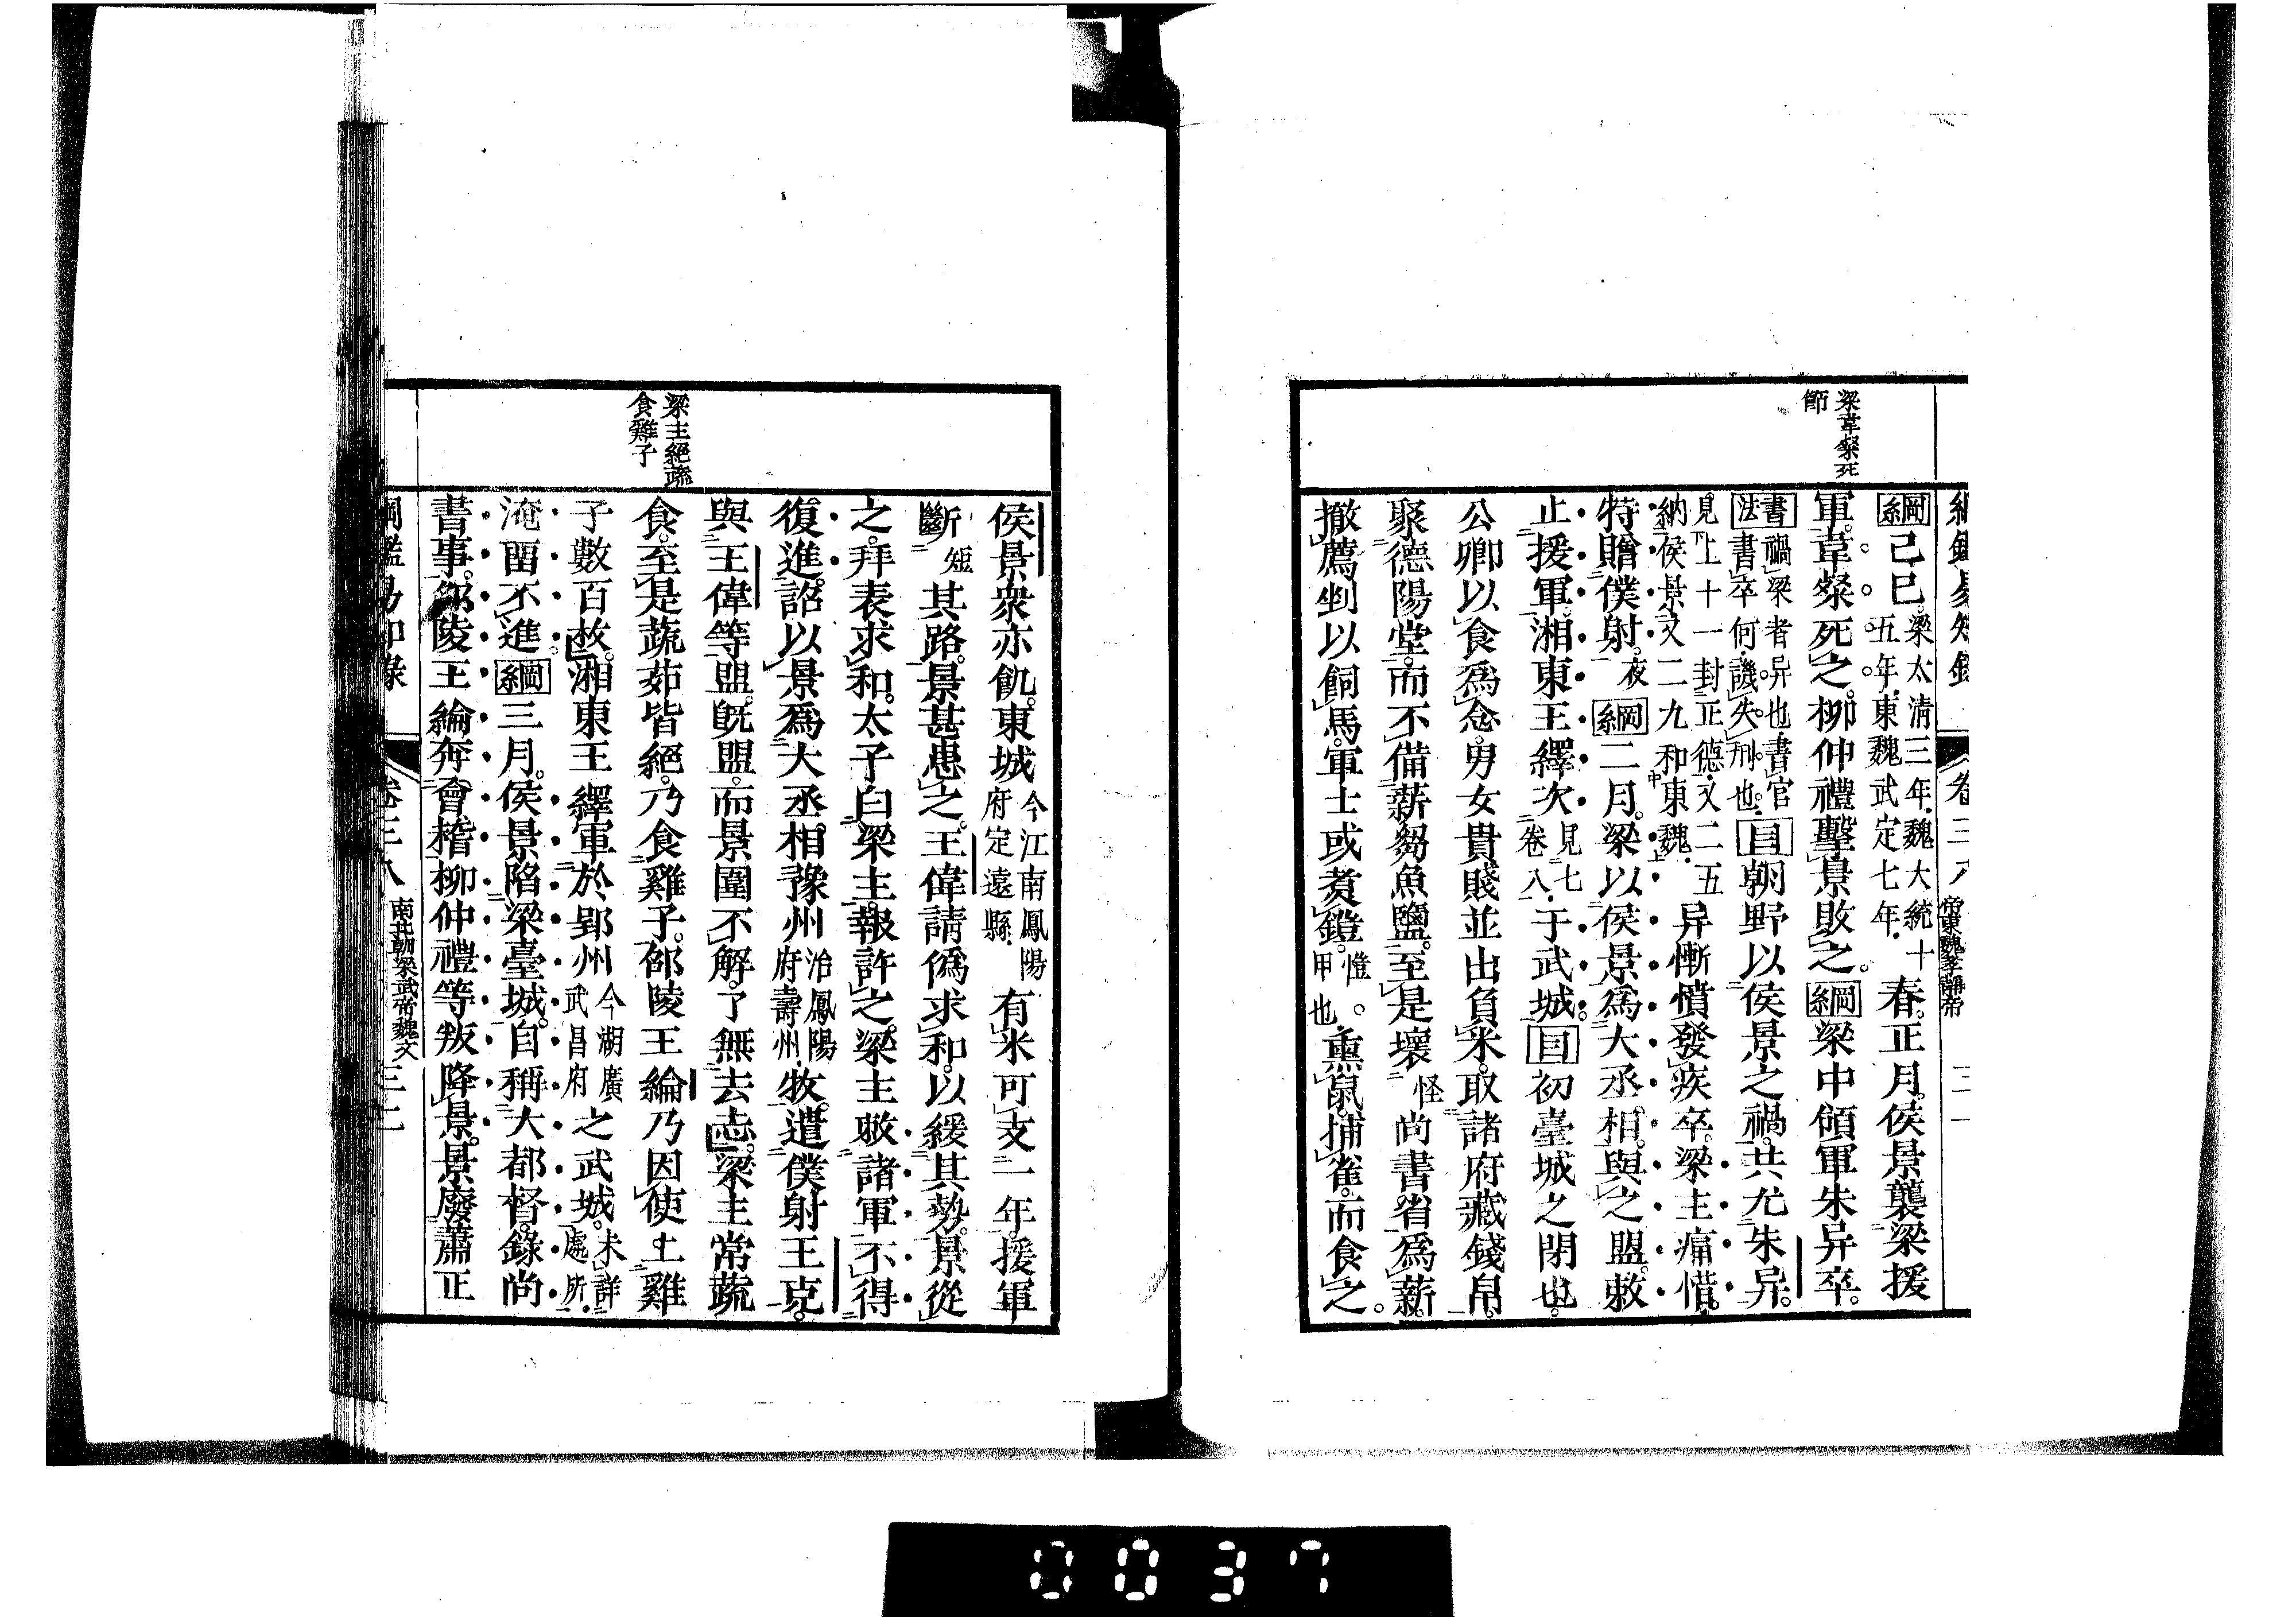 綱鑑易知錄　卷三八　帝東魏孝靜帝　三一
梁韋粲死
節
綱己巳。梁太淸三年。魏大統十
五年。東魏武定七年。春。正月。侯景襲梁援
軍。韋粲死之。柳仲禮擊景敗之。綱梁中領軍朱异卒。
書法禍梁者异也。書官
書卒何。譏失刑也。目朝野以侯景之禍。共尤朱异。
見上十一封正德。又二五
納侯景。又二九和東魏。异慚憤發疾卒。梁主痛惜。
特贈僕射。夜綱二月。梁以侯景爲大丞相。與之盟。敕
止援軍。湘東王繹次見七
卷八于武城。目初臺城之閉也。
公卿以食爲念。男女貴賤並出負米。取諸府藏錢帛。
聚德陽堂。而不備薪芻魚鹽。至是壞怪尚書省爲薪。
撤薦剉以飼馬。軍士或煑鎧。愷。
甲也。熏鼠。捕雀。而食之。
侯景衆亦飢。東城今江南鳳陽
府定遠縣。有米可支一年。援軍
斷短其路。景甚患之。王偉請僞求和。以緩其勢。景從
之。拜表求和。太子白梁主。報許之。梁主敕諸軍不得
復進。詔以景爲大丞相。豫州治鳳陽
府壽州。牧。遣僕射王克。
與王偉等盟。旣盟。而景圍不解。了無去志。梁主常蔬
梁主絕蔬
食雞子
食。至是蔬茹皆絕。乃食雞子。邵陵王綸乃因使上雞
子數百枚。湘東王繹軍於郢州今湖廣
武昌府之武城。未詳
處所。
淹留不進。綱三月。侯景陷梁臺城。自稱大都督。錄尚
書事。邵陵王綸奔會稽。柳仲禮等叛降景。景廢蕭正
綱鑑易知錄　卷三八　南北朝梁武帝魏文　三一
0037